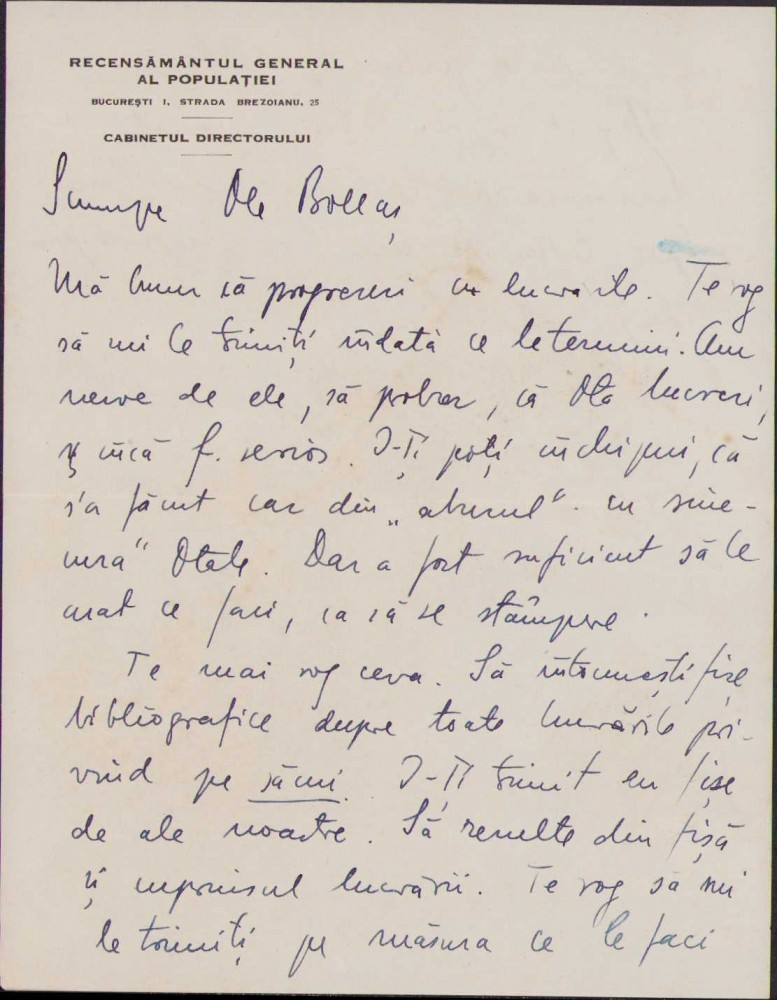 RECENSĂMÂNTUL GENERAL
AL POPULAȚIEI
BUCUREȘTI I, STRADA BREZOIANU, 25
CABINETUL DIRECTORULUI
Scumpe Dle Bollaș,
Mă bucur că progresezi cu lucrarile. Te rog
să mi le trimiți îndată ce le termini. Am
nevoe de ele, să probez, că Dta lucrezi,
și încă f. serios. I-Ți poți închipui, că
s'a făcut caz din „abuzul" cu sine-
cura" Dtale. Dar a fost suficient să le
arat ce faci, ca să se stâmpere.
Te mai rog ceva. Să întocmești fișe
bibliografice despre toate lucrările pri-
vind pe sămi. I-Ți trimit eu fișe
de ale noastre. Să rezulte din fișă
și cuprinsul lucrării. Te rog să mi
le trimiți pe măsura ce le faci